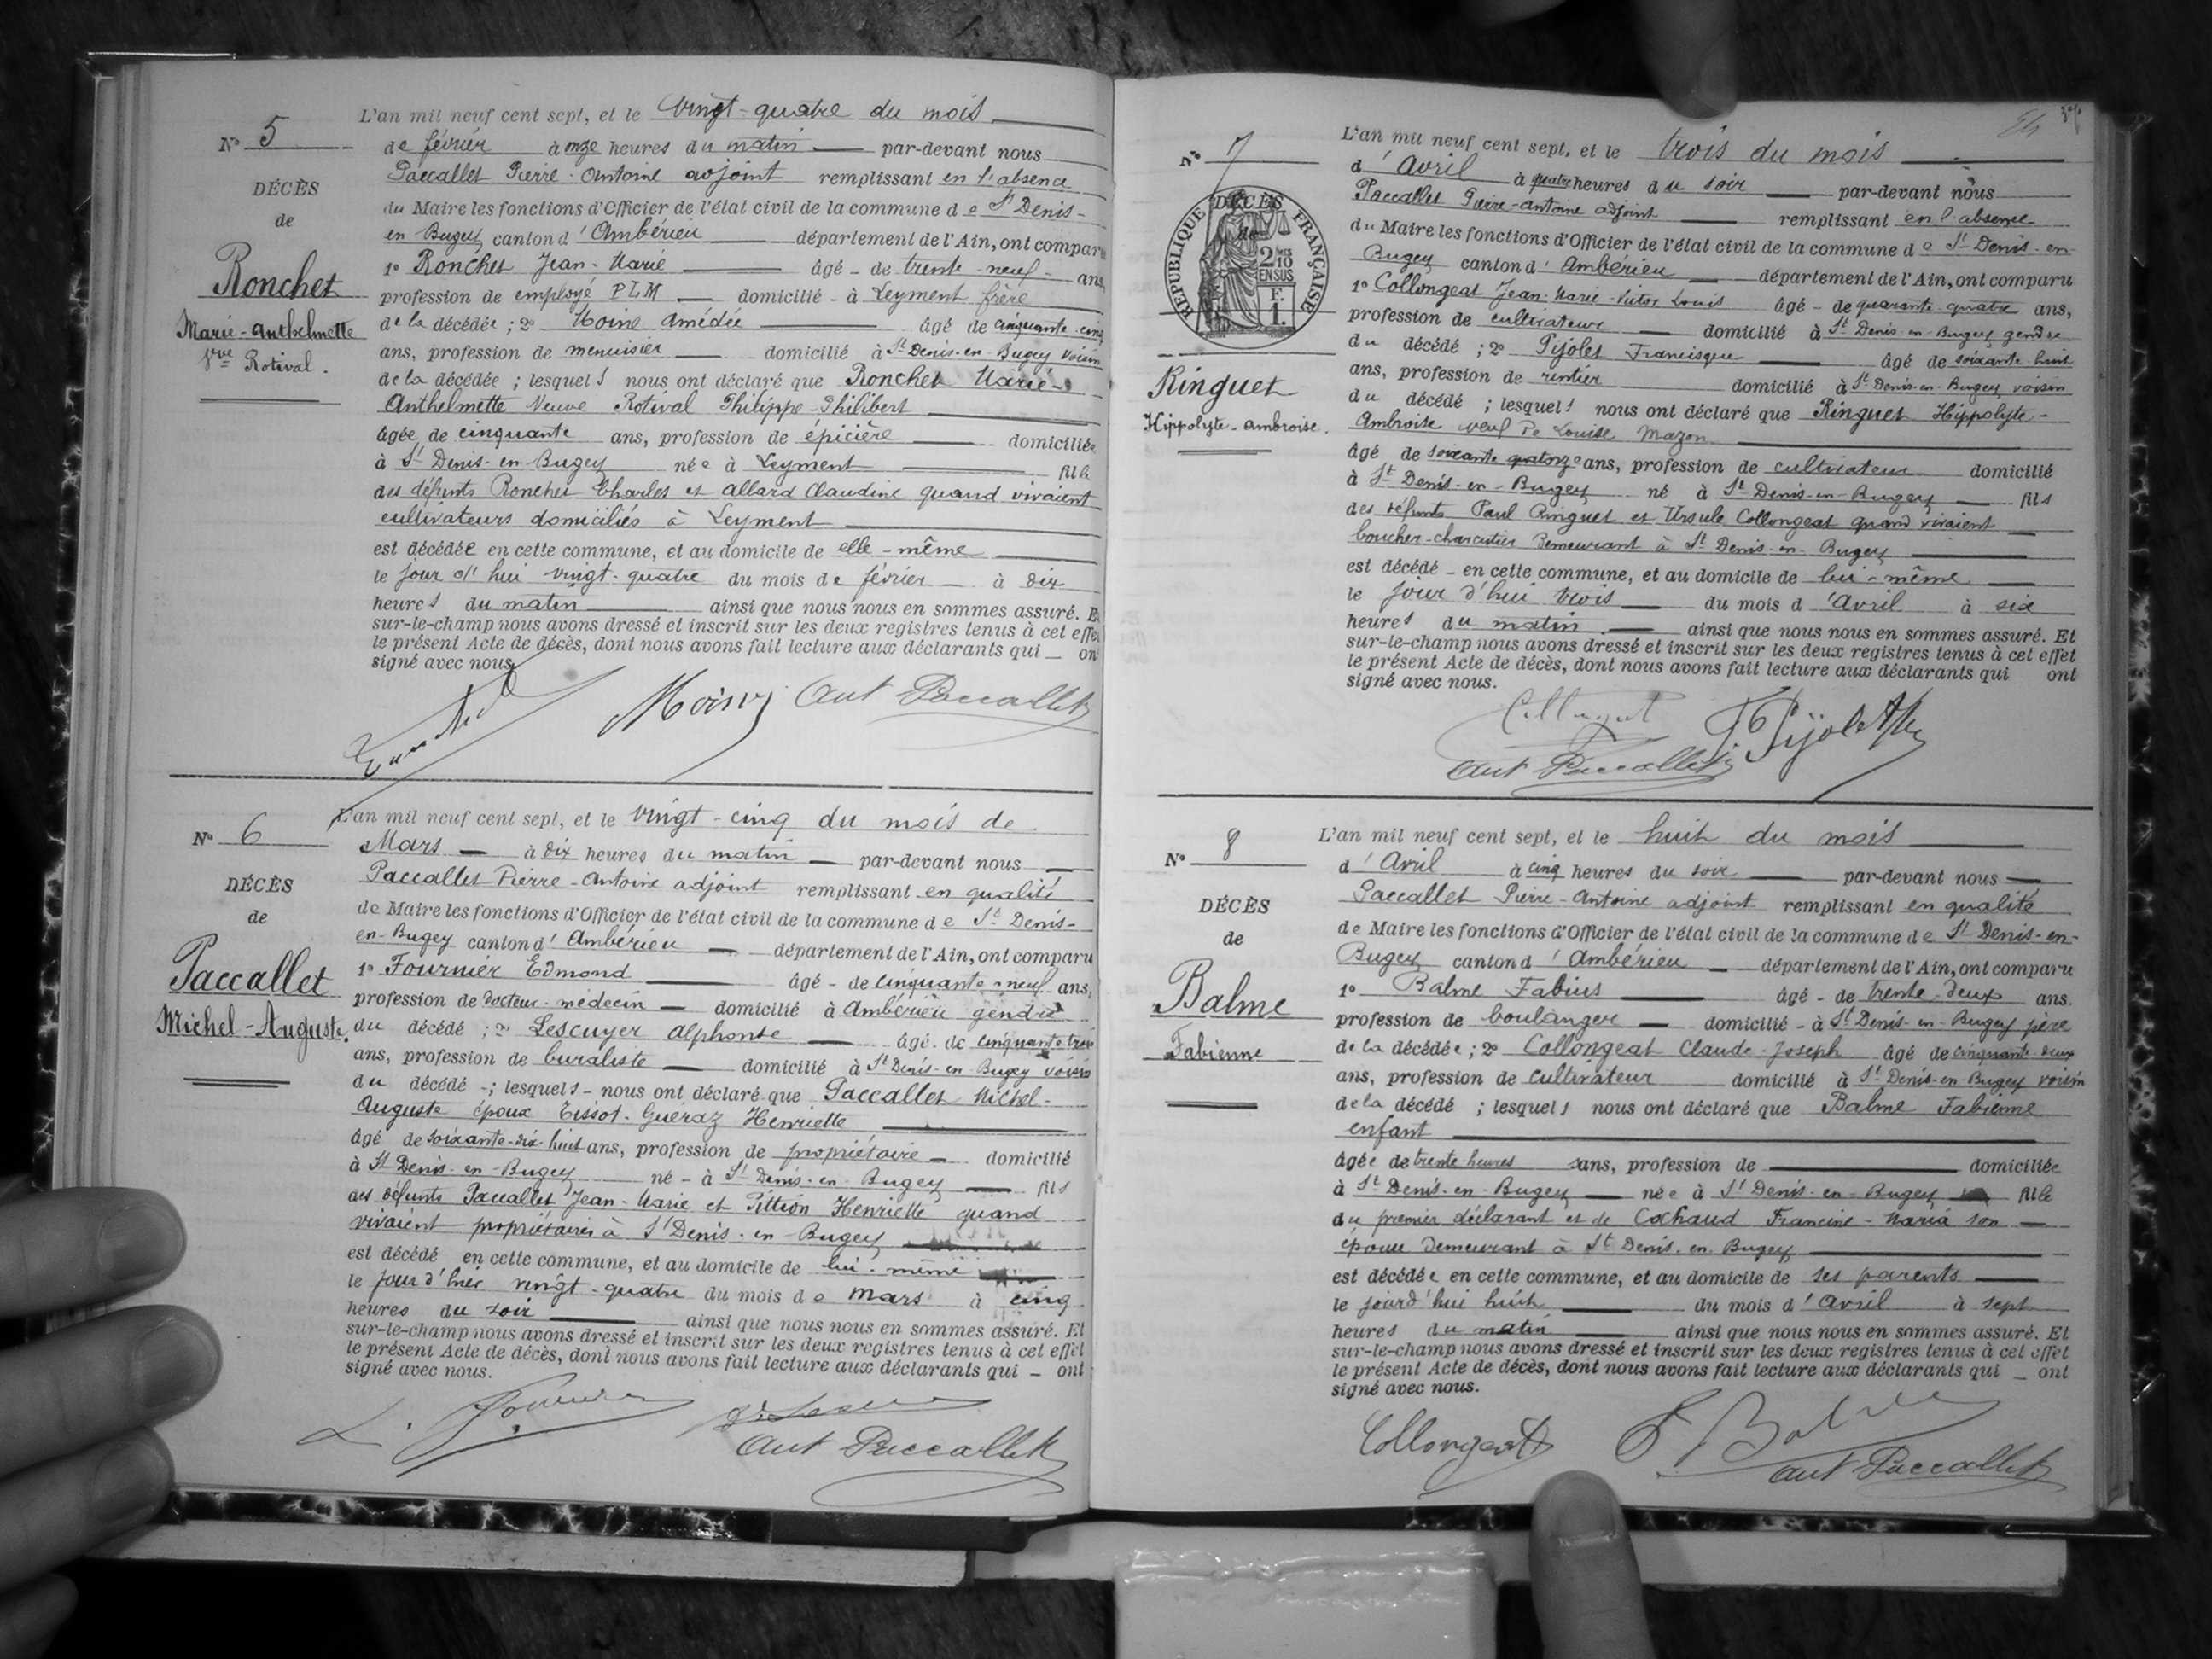 N° 5
DÉCÈS
de
Ronchet
Marie-Anthelmette
Vve Rotival.
L'an mil neuf cent sept, et le vingt-quatre du mois
de février à onze heures du matin par-devant nous
Paccallet Pierre-Antoine adjoint remplissant en l'absence
du Maire les fonctions d'Officier de l'état civil de la commune de St Denis-
en Bugey canton d'Ambérieu département de l'Ain, ont comparu
1° Ronchet Jean-Marie âgé de trente-neuf ans,
profession de employé PLM domicilié à Leyment frère
de la décédée ; 2° Moine Amédée âgé de cinquante-cinq
ans, profession de menuisier domicilié à St Denis-en-Bugey voisin
de la décédée ; lesquels nous ont déclaré que Ronchet Marie-
Anthelmette Veuve Rotival Philippe-Philibert
âgée de cinquante ans, profession de épicière domiciliée
à St Denis-en-Bugey née à Leyment fille
des défunts Ronchet Charles et Allard Claudine quand vivaient
cultivateurs domiciliés à Leyment
est décédée en cette commune, et au domicile de elle-même
le jour d'hui vingt-quatre du mois de février à dix
heures du matin ainsi que nous nous en sommes assuré. Et
sur-le-champ nous avons dressé et inscrit sur les deux registres tenus à cet effet
le présent Acte de décès, dont nous avons fait lecture aux déclarants qui ont
signé avec nous.
Moine Ant Paccallet
N° 6
DÉCÈS
de
Paccallet
Michel-Auguste.
L'an mil neuf cent sept, et le vingt-cinq du mois de
Mars à dix heures du matin par-devant nous
Paccallet Pierre-Antoine adjoint remplissant en qualité
de Maire les fonctions d'Officier de l'état civil de la commune de St Denis-
en-Bugey canton d'Ambérieu département de l'Ain, ont comparu
1° Fournier Edmond âgé de cinquante-neuf ans,
profession de docteur-médecin domicilié à Ambérieu gendre
du décédé ; 2° Lescuyer Alphonse âgé de cinquante trois
ans, profession de buraliste domicilié à St Denis-en-Bugey voisin
du décédé ; lesquels nous ont déclaré que Paccallet Michel-
Auguste époux Tissot-Guéraz Henriette
âgé de soixante-dix-huit ans, profession de propriétaire domicilié
à St Denis-en-Bugey né à St Denis-en-Bugey fils
des défunts Paccallet Jean-Marie et Pittion Henriette quand
vivaient propriétaires à St Denis-en-Bugey
est décédé en cette commune, et au domicile de lui-même
le jour d'hier vingt-quatre du mois de Mars à cinq
heures du soir ainsi que nous nous en sommes assuré. Et
sur-le-champ nous avons dressé et inscrit sur les deux registres tenus à cet effet
le présent Acte de décès, dont nous avons fait lecture aux déclarants qui ont
signé avec nous.
Ant Paccallet
N° 7
RÉPUBLIQUE FRANÇAISE
DÉCÈS
de
2/10 EN SUS
F. 1.
Ringuet
Hippolyte-Ambroise.
L'an mil neuf cent sept, et le trois du mois
d'Avril à quatre heures du soir par-devant nous
Paccallet Pierre-Antoine adjoint remplissant en l'absence
du Maire les fonctions d'Officier de l'état civil de la commune de St Denis-en-
Bugey canton d'Ambérieu département de l'Ain, ont comparu
1° Collongeat Jean-Marie-Victor Louis âgé de quarante-quatre ans,
profession de cultivateur domicilié à St Denis-en-Bugey gendre
du décédé ; 2° Pijolet Francisque âgé de soixante huit
ans, profession de rentier domicilié à St Denis-en-Bugey voisin
du décédé ; lesquels nous ont déclaré que Ringuet Hippolyte-
Ambroise veuf de Louise Mazon
âgé de soixante quatorze ans, profession de cultivateur domicilié
à St Denis-en-Bugey né à St Denis-en-Bugey fils
des défunts Paul Ringuet et Ursule Collongeat quand vivaient
boucher-charcutier demeurant à St Denis-en-Bugey
est décédé en cette commune, et au domicile de lui-même
le jour d'hui trois du mois d'Avril à six
heures du matin ainsi que nous nous en sommes assuré. Et
sur-le-champ nous avons dressé et inscrit sur les deux registres tenus à cet effet
le présent Acte de décès, dont nous avons fait lecture aux déclarants qui ont
signé avec nous.
F Pijolet
Ant Paccallet
N° 8
DÉCÈS
de
Balme
Fabienne
L'an mil neuf cent sept, et le huit du mois
d'Avril à cinq heures du soir par-devant nous
Paccallet Pierre-Antoine adjoint remplissant en qualité
de Maire les fonctions d'Officier de l'état civil de la commune de St Denis-en-
Bugey canton d'Ambérieu département de l'Ain, ont comparu
1° Balme Fabius âgé de trente-deux ans.
profession de boulanger domicilié à St Denis-en-Bugey père
de la décédée ; 2° Collongeat Claude-Joseph âgé de cinquante-deux
ans, profession de cultivateur domicilié à St Denis-en-Bugey voisin
de la décédé ; lesquels nous ont déclaré que Balme Fabienne
enfant
âgée de trente heures sans, profession de domiciliée
à St Denis-en-Bugey née à St Denis-en-Bugey fille
du premier déclarant et de Cochaud Francine-Maria son
épouse demeurant à St Denis-en-Bugey
est décédée en cette commune, et au domicile de ses parents
le jourd'hui huit du mois d'Avril à sept
heures du matin ainsi que nous nous en sommes assuré. Et
sur-le-champ nous avons dressé et inscrit sur les deux registres tenus à cet effet
le présent Acte de décès, dont nous avons fait lecture aux déclarants qui ont
signé avec nous.
Collongeat F. Balme
Ant Paccallet